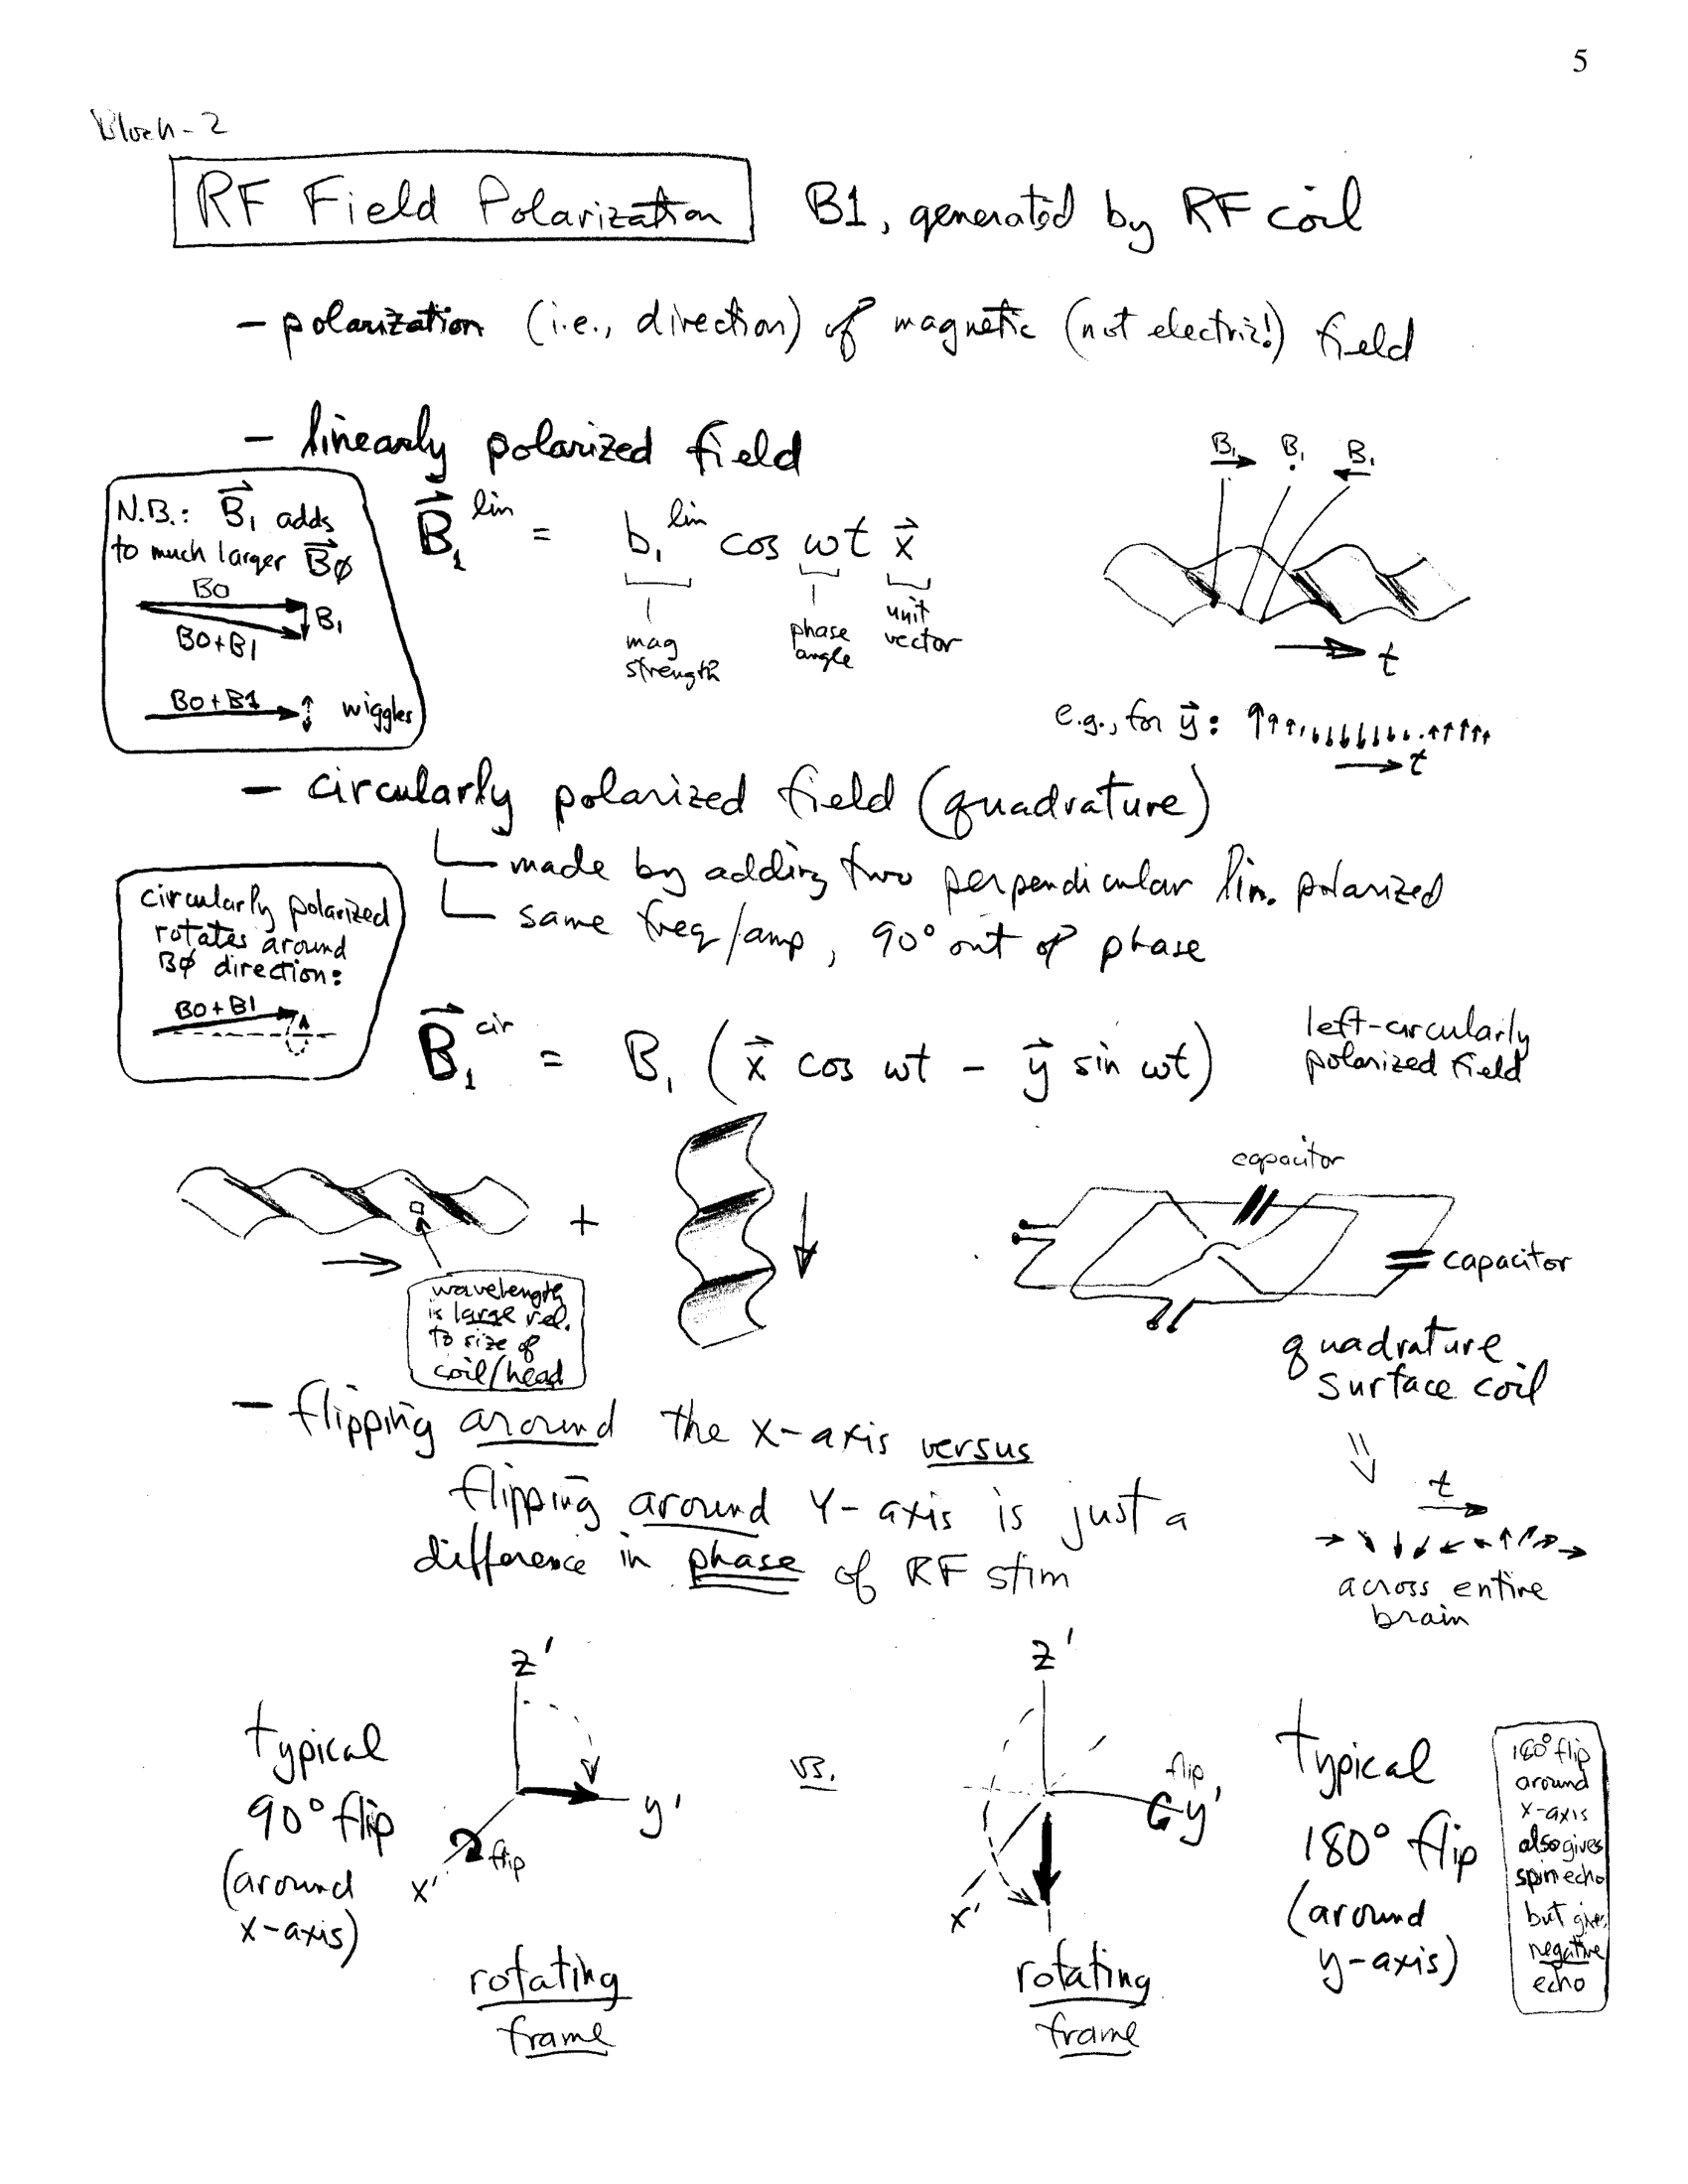 5
Bloch-2
RF Field Polarization
B1, generated by RF coil
- polarization (i.e., direction) of magnetic (not electric!) field
- linearly polarized field
N.B.: B⃗₁ adds
to much larger B⃗Ø
B0
B₁
B0+B1
B0+B1
wiggles
B⃗₁ˡⁱⁿ = b₁ˡⁱⁿ cos ωt x⃗
mag
strength
phase
angle
unit
vector
B₁ B₁ B₁
t
e.g., for y⃗:
t
- circularly polarized field (quadrature)
made by adding two perpendicular lin. polarized
same freq/amp, 90° out of phase
circularly polarized
rotates around
BØ direction:
B0+B1
B⃗₁ᶜⁱʳ = B₁ (x⃗ cos ωt - y⃗ sin ωt)
left-circularly
polarized field
+
wavelength
is large rel.
to size of
coil/head
capacitor
capacitor
quadrature
surface coil
t
across entire
brain
- flipping around the x-axis versus
flipping around Y-axis is just a
difference in phase of RF stim
typical
90° flip
(around
x-axis)
z'
y'
x'
flip
rotating
frame
vs.
z'
flip
y'
x'
rotating
frame
typical
180° flip
(around
y-axis)
180° flip
around
x-axis
also gives
spin echo
but gives
negative
echo